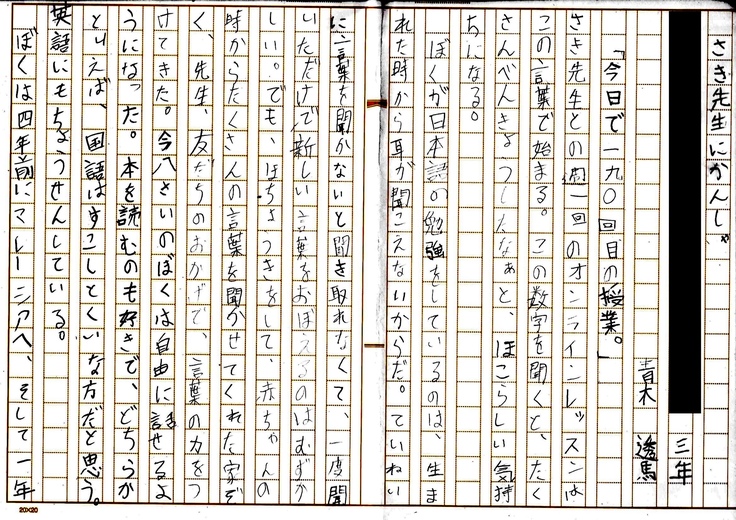 さぎ先生にかんしゃ
三年
青木 透馬
「今日で一九〇回目の授業。」
さぎ先生との週一回のオンラインレッスンは
この言葉で始まる。この数字を聞くと、たく
さんべんきょうしたなぁと、ほこらしい気持
ちになる。
ぼくが日本語の勉強をしているのは、生ま
れた時から耳が聞こえないからだ。ていねい
に言葉を聞かないと聞き取れなくて、一度聞
いただけで新しい言葉をおぼえるのはむずか
しい。でも、ほちょうきをして、赤ちゃんの
時からたくさんの言葉を聞かせてくれた家ぞ
く、先生、友だちのおかげで、言葉の力をつ
けてきた。今八さいのぼくは自由に話せるよ
うになった。本を読むのも好きで、どちらか
といえば、国語はすこしとくいな方だと思う。
英語にもちょうせんしている。
ぼくは四年前にマレーシアへ、そして一年
20×20